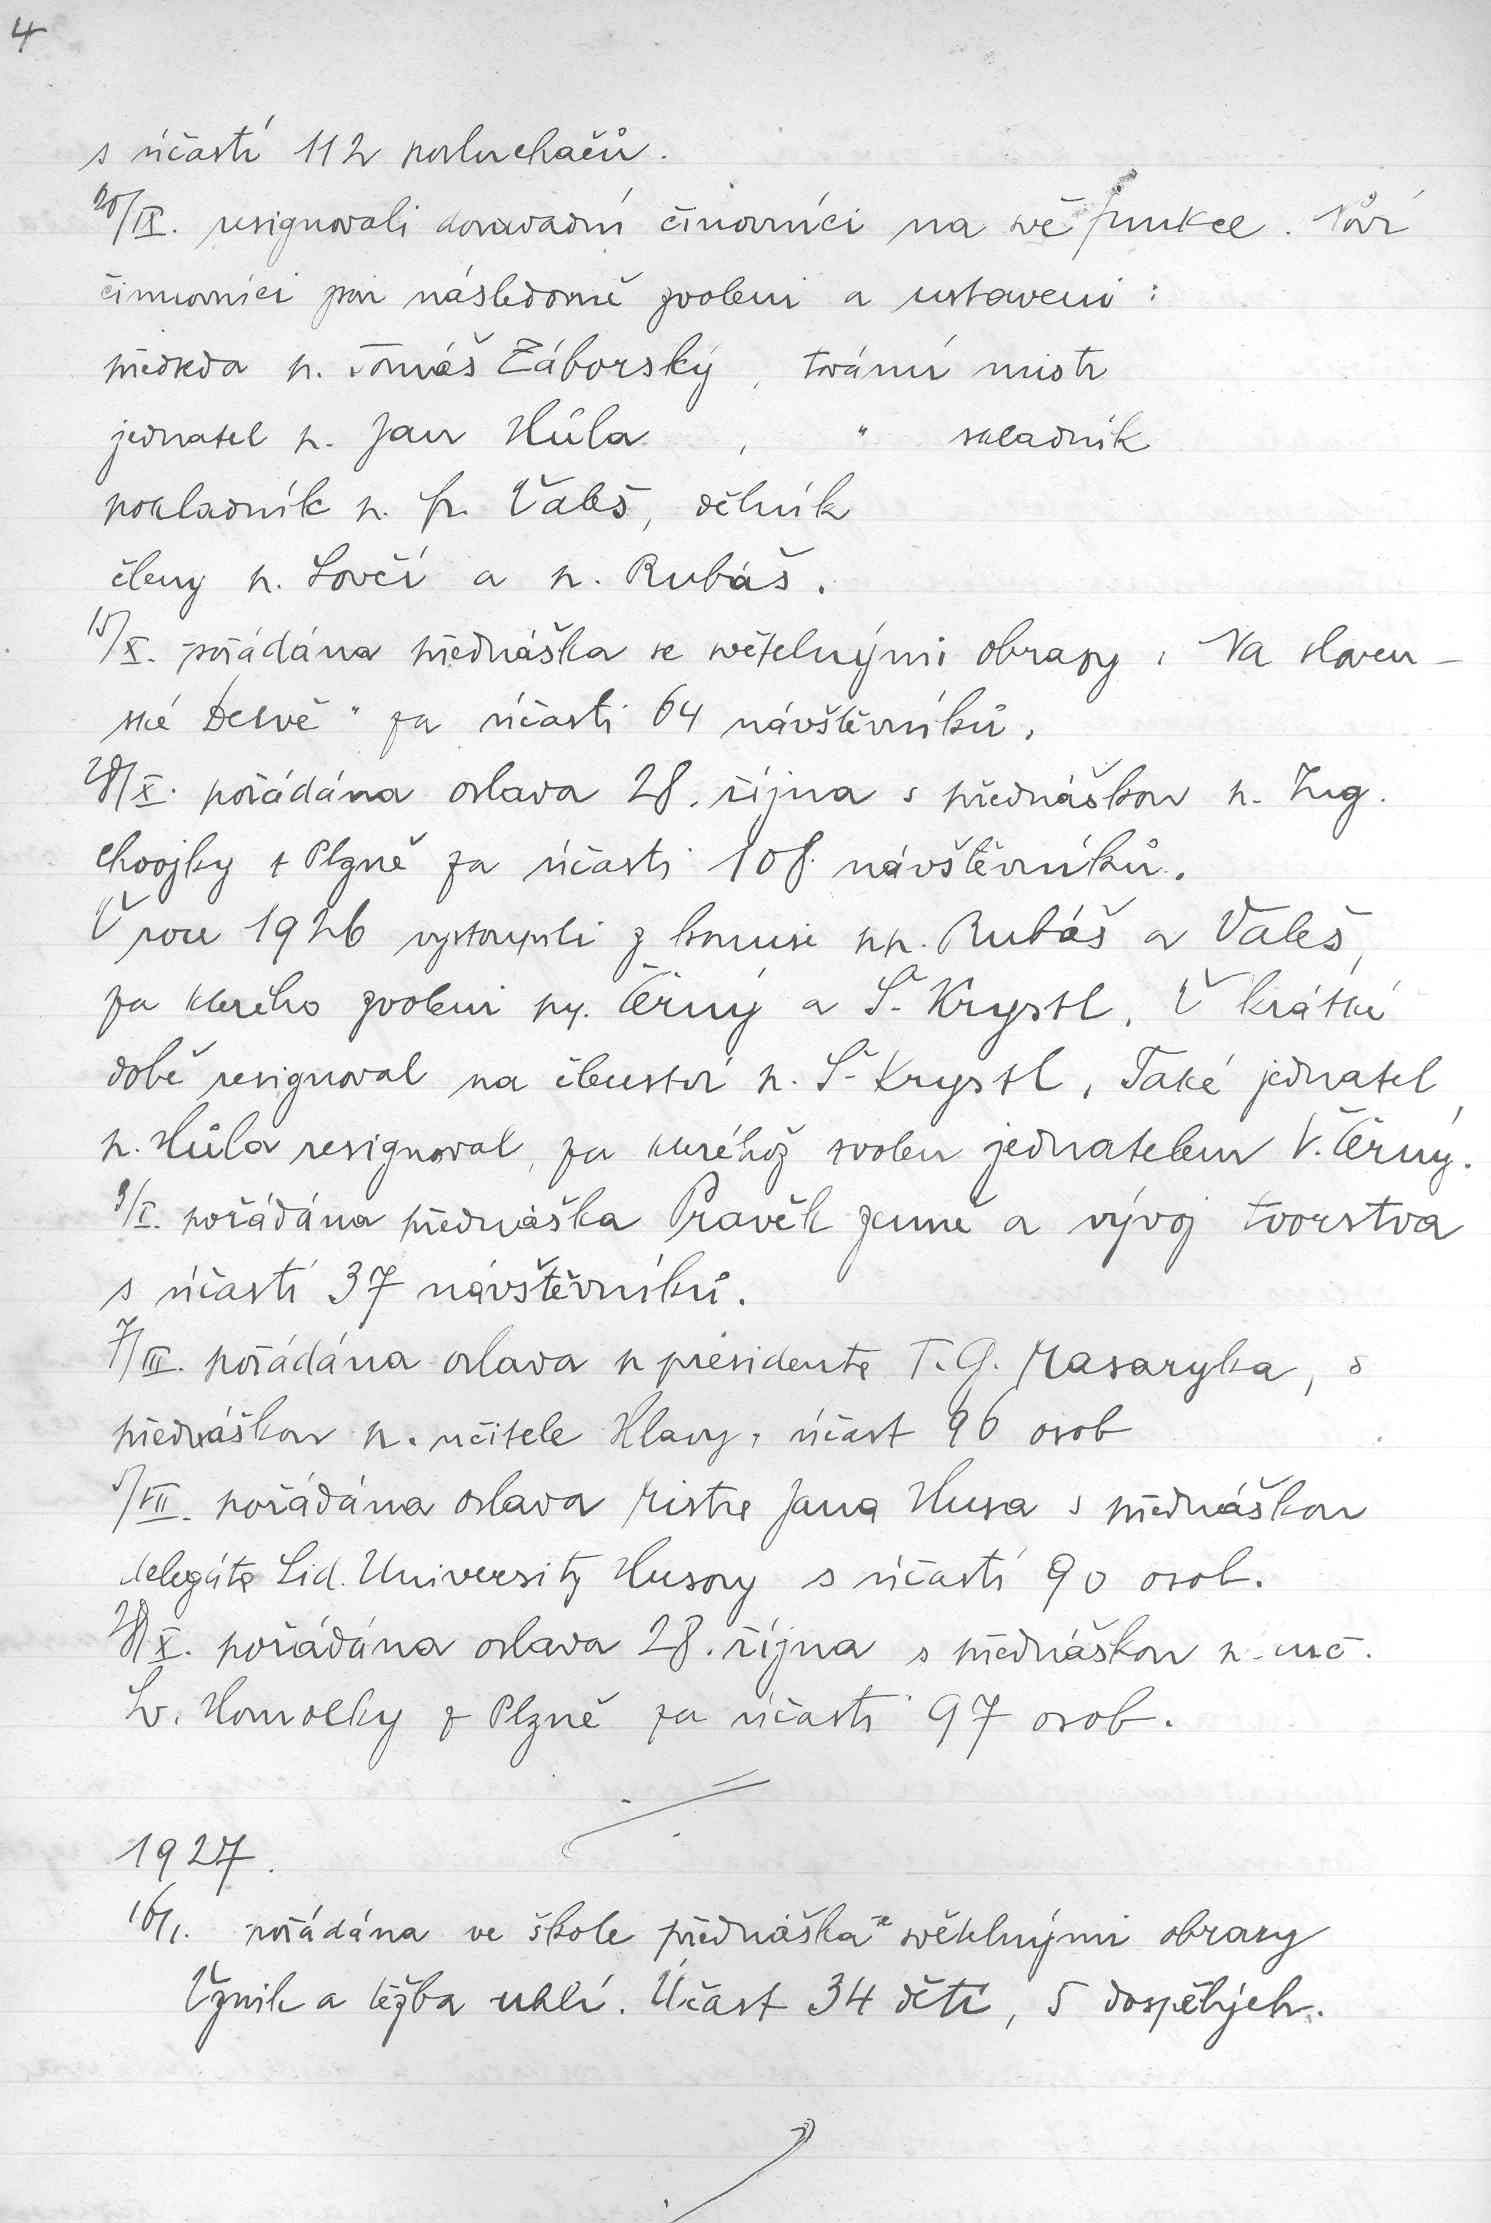 4
s účastí 112 posluchačů.
20/IX. resignovali dosavadní činovníci na své funkce. Noví
činovníci jsou následovně zvoleni a ustaveni:
předseda p. Tomáš Záborský, továrni mistr
jednatel p. Jan Hůla , " skladník
pokladník p. Fr. Valeš, dělník
členy p. Lovčí a p. Rubáš.
15/X. pořádána přednáška se světelnými obrazy „Na sloven-
ské Detvě" za účasti 64 návštěvníků.
28/X. pořádána oslava 28. října s přednáškou p. Ing.
Chvojky z Plzně za účasti 108 návštěvníků.
V roce 1926 vystoupili z komise pp. Rubáš a Valeš,
za kterého zvoleni pp. Černý a Š. Krystl. V krátké
době resignoval na členství p. Š. Krystl. Také jednatel
p. Hůla resignoval, za kteréhož zvolen jednatelem V. Černý.
9/I. pořádána přednáška Pravěk země a vývoj tvorstva
s účastí 37 návštěvníků.
7/III. pořádána oslava p presidenta T. G. Masaryka, s
přednáškou p. učitele Hlavy, účast 96 osob
5/VII. pořádána oslava Mistra Jana Husa s přednáškou
delegáta Lid. University Husovy s účastí 90 osob.
28/X. pořádána oslava 28. října s přednáškou p. uč.
Lv. Homolky z Plzně za účasti 97 osob.
1927.
16/1. pořádána ve škole přednáška se světelnými obrazy
Vznik a těžba uhlí. Účast 34 dětí, 5 dospělých.